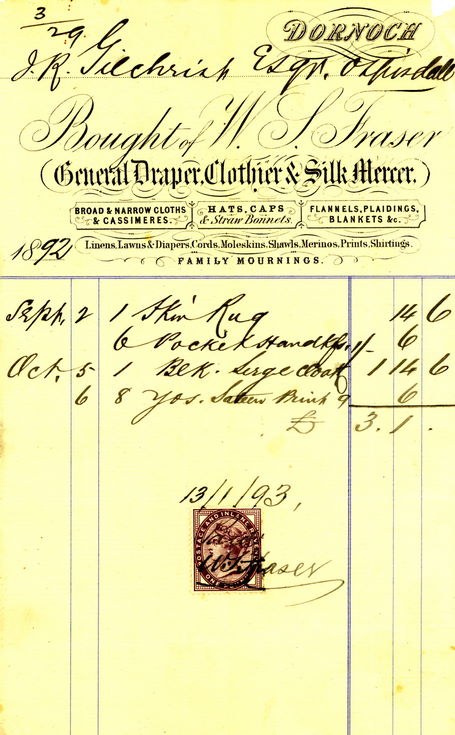 3/29
DORNOCH
J. R. Gilchrist Esqr. Ospisdall
Bought of W. S. Fraser
General Draper, Clothier & Silk Mercer.
BROAD & NARROW CLOTHS & CASSIMERES.
HATS, CAPS & Straw Bonnets.
FLANNELS, PLAIDINGS, BLANKETS &c.
1892
Linens, Lawns & Diapers, Cords, Moleskins, Shawls, Merinos, Prints, Shirtings.
FAMILY MOURNINGS.
Sept. 2 1 Skin Rug 14 6
6 Pocket Handkfs. 1/- 6
Oct. 5 1 Blk. Serge Cloak 1 14 6
6 8 Yds. Sateen Print 9 6
£ 3. 1 .
13/1/93,
POSTAGE AND INLAND REVENUE
W. S. Fraser